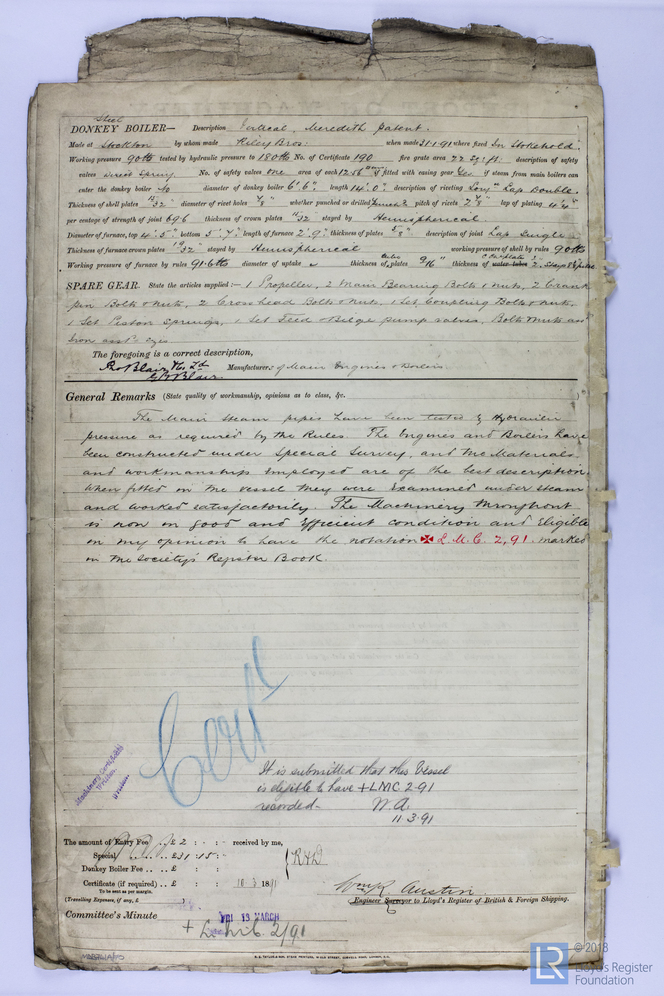 Steel
DONKEY BOILER— Description Vertical, Meredith patent.
Made at Stockton by whom made Riley Bros. when made 31.1.91 where fixed In Stokehold.
Working pressure 90 lbs tested by hydraulic pressure to 180 lbs No. of Certificate 190 fire grate area 22 sq: ft. description of safety
valves Direct Spring No. of safety valves one area of each 12.56 if fitted with easing gear Yes if steam from main boilers can
enter the donkey boiler No diameter of donkey boiler 6' 6" length 14' 0" description of riveting Long: Lap Double.
Thickness of shell plates 11/32" diameter of rivet holes 7/8" whether punched or drilled punched pitch of rivets 2 7/8" lap of plating 4 1/2"
per centage of strength of joint 69.6 thickness of crown plates 11/32" stayed by Hemispherical
Diameter of furnace, top 4' 5" bottom 5' 7" length of furnace 2' 9" thickness of plates 5/8" description of joint Lap Single
Thickness of furnace crown plates 19/32" stayed by Hemispherical working pressure of shell by rules 90 lbs
Working pressure of furnace by rules 91.6 lbs diameter of uptake thickness of plates 9/16" thickness of water tubes
SPARE GEAR. State the articles supplied:— 1 Propeller, 2 Main Bearing Bolts & nuts, 2 Crank
pin Bolts & nuts, 2 Crosshead Bolts & nuts, 1 Set Coupling Bolts & nuts,
1 Set Piston Springs, 1 Set Feed & Bilge pump valves, Bolts Nuts and
Iron assd sizes
The foregoing is a correct description,
Blair & Co Ld Manufacturers of Main Engines & Boilers.
G Blair
General Remarks (State quality of workmanship, opinions as to class, &c.
The Main steam pipes have been tested by Hydraulic
pressure as required by the Rules. The Engines and Boilers have
been constructed under Special Survey, and the Materials
and workmanship employed are of the best description.
When fitted in the vessel they were examined under steam
and worked satisfactorily. The Machinery throughout
is now in good and efficient condition and Eligible
in my opinion to have the notation ✠ L.M.C. 2,91. marked
in the Society's Register Book.
Cert
Machinery Certificate
Written
It is submitted that this Vessel
is eligible to have + LMC 2.91
recorded.
W.A.
11.3.91
The amount of Entry Fee .. £ 2 : - : - received by me,
Special .. .. £31 : 15 : -
Donkey Boiler Fee .. £ : :
Certificate (if required) .. £ : : 10.3 1891
To be sent as per margin.
(Travelling Expenses, if any, £
Wm R Austin.
Engineer Surveyor to Lloyd's Register of British & Foreign Shipping.
Committee's Minute
FRI 13 MARCH
+ L.M.C. 2/91
© 2018
Lloyd's Register
Foundation
LR